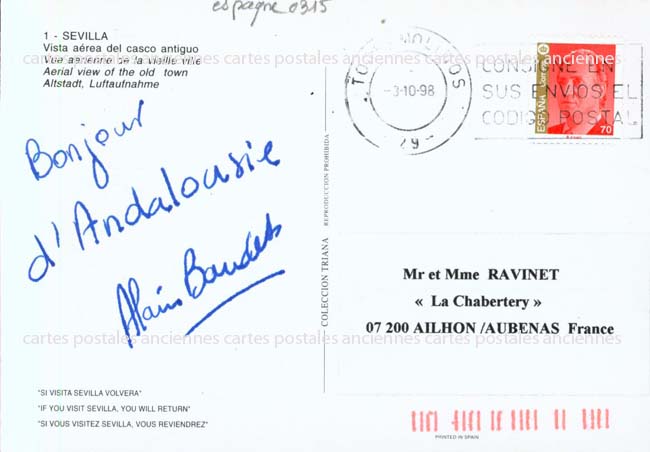 espagne 0315
1 - SEVILLA
Vista aérea del casco antiguo
Vue aérienne de la vieille ville
Aerial view of the old town
Altstadt, Luftaufnahme
cartes postales anciennes cartes postales anciennes cartes postales anciennes
TORREMOLINOS
-3-10-98
29
CONSIGNE EN
SUS ENVIOS EL
CODIGO POSTAL
ESPAÑA
70
Bonjour
d'Andalousie
Alain Baudet
COLECCION TRIANA
REPRODUCCION PROHIBIDA
Mr et Mme RAVINET
« La Chabertery »
07 200 AILHON /AUBENAS France
cartes postales anciennes cartes postales anciennes cartes postales anciennes
"SI VISITA SEVILLA VOLVERA"
"IF YOU VISIT SEVILLA, YOU WILL RETURN"
"SI VOUS VISITEZ SEVILLA, VOUS REVIENDREZ"
PRINTED IN SPAIN